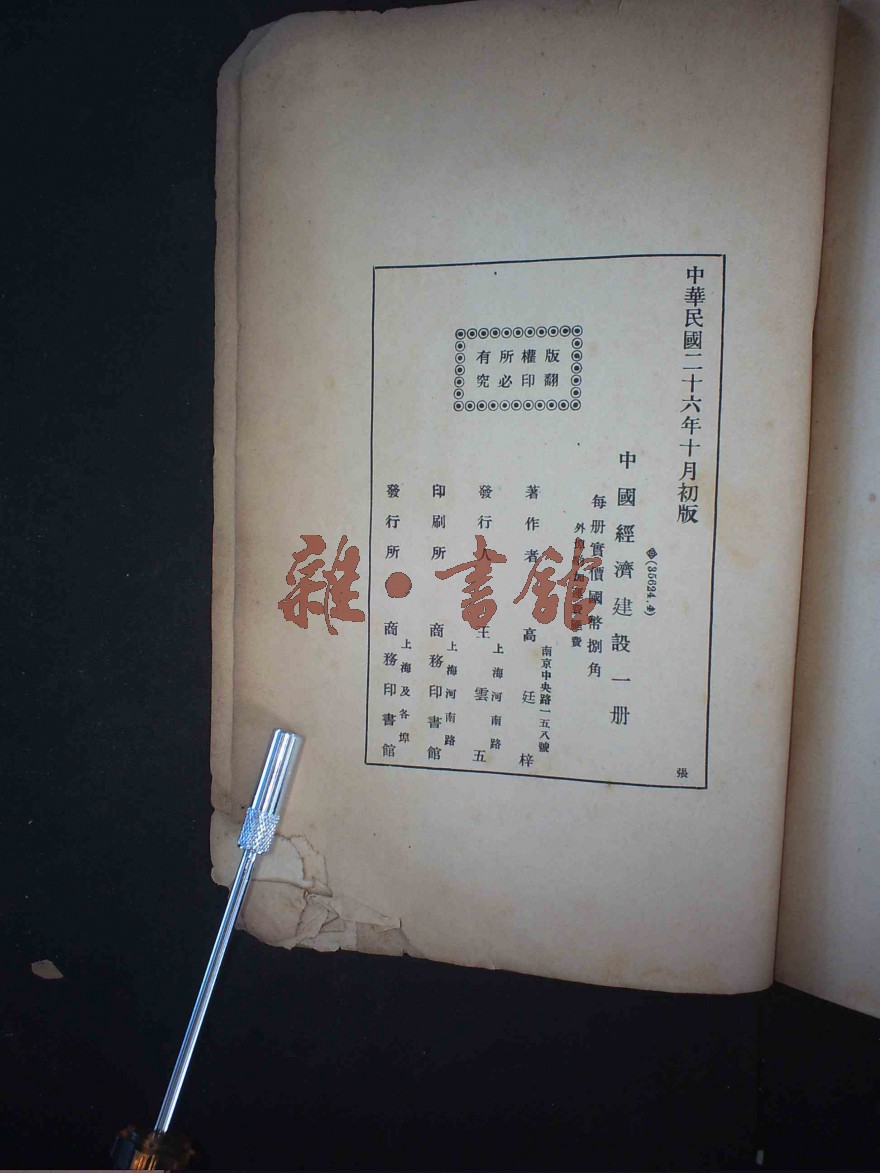 中華民國二十六年十月初版
(35624.4)
中國經濟建設一册
每册實價國幣捌角
外埠
費
著作者 高廷梓
南京中央路一五八號
發行人 王雲五
上海河南路
印刷所 商務印書館
上海河南路
發行所 商務印書館
上海及各埠
版權所有
翻印必究
張
雜·書館